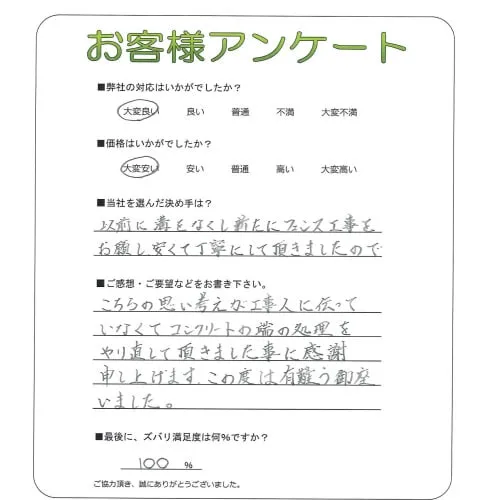 お客様アンケート
■弊社の対応はいかがでしたか？
大変良い 良い 普通 不満 大変不満
■価格はいかがでしたか？
大変安い 安い 普通 高い 大変高い
■当社を選んだ決め手は？
以前に溝をなくし新たにフェンス工事を
お願し、安くて丁寧にして頂きましたので
■ご感想・ご要望などをお書き下さい。
こちらの思い考えが工事人に伝って
いなくてコンクリートの端の処理を
やり直して頂きました事に感謝
申し上げます、この度は有難う御座
いました。
■最後に、ズバリ満足度は何%ですか？
100 %
ご協力頂き、誠にありがとうございました。